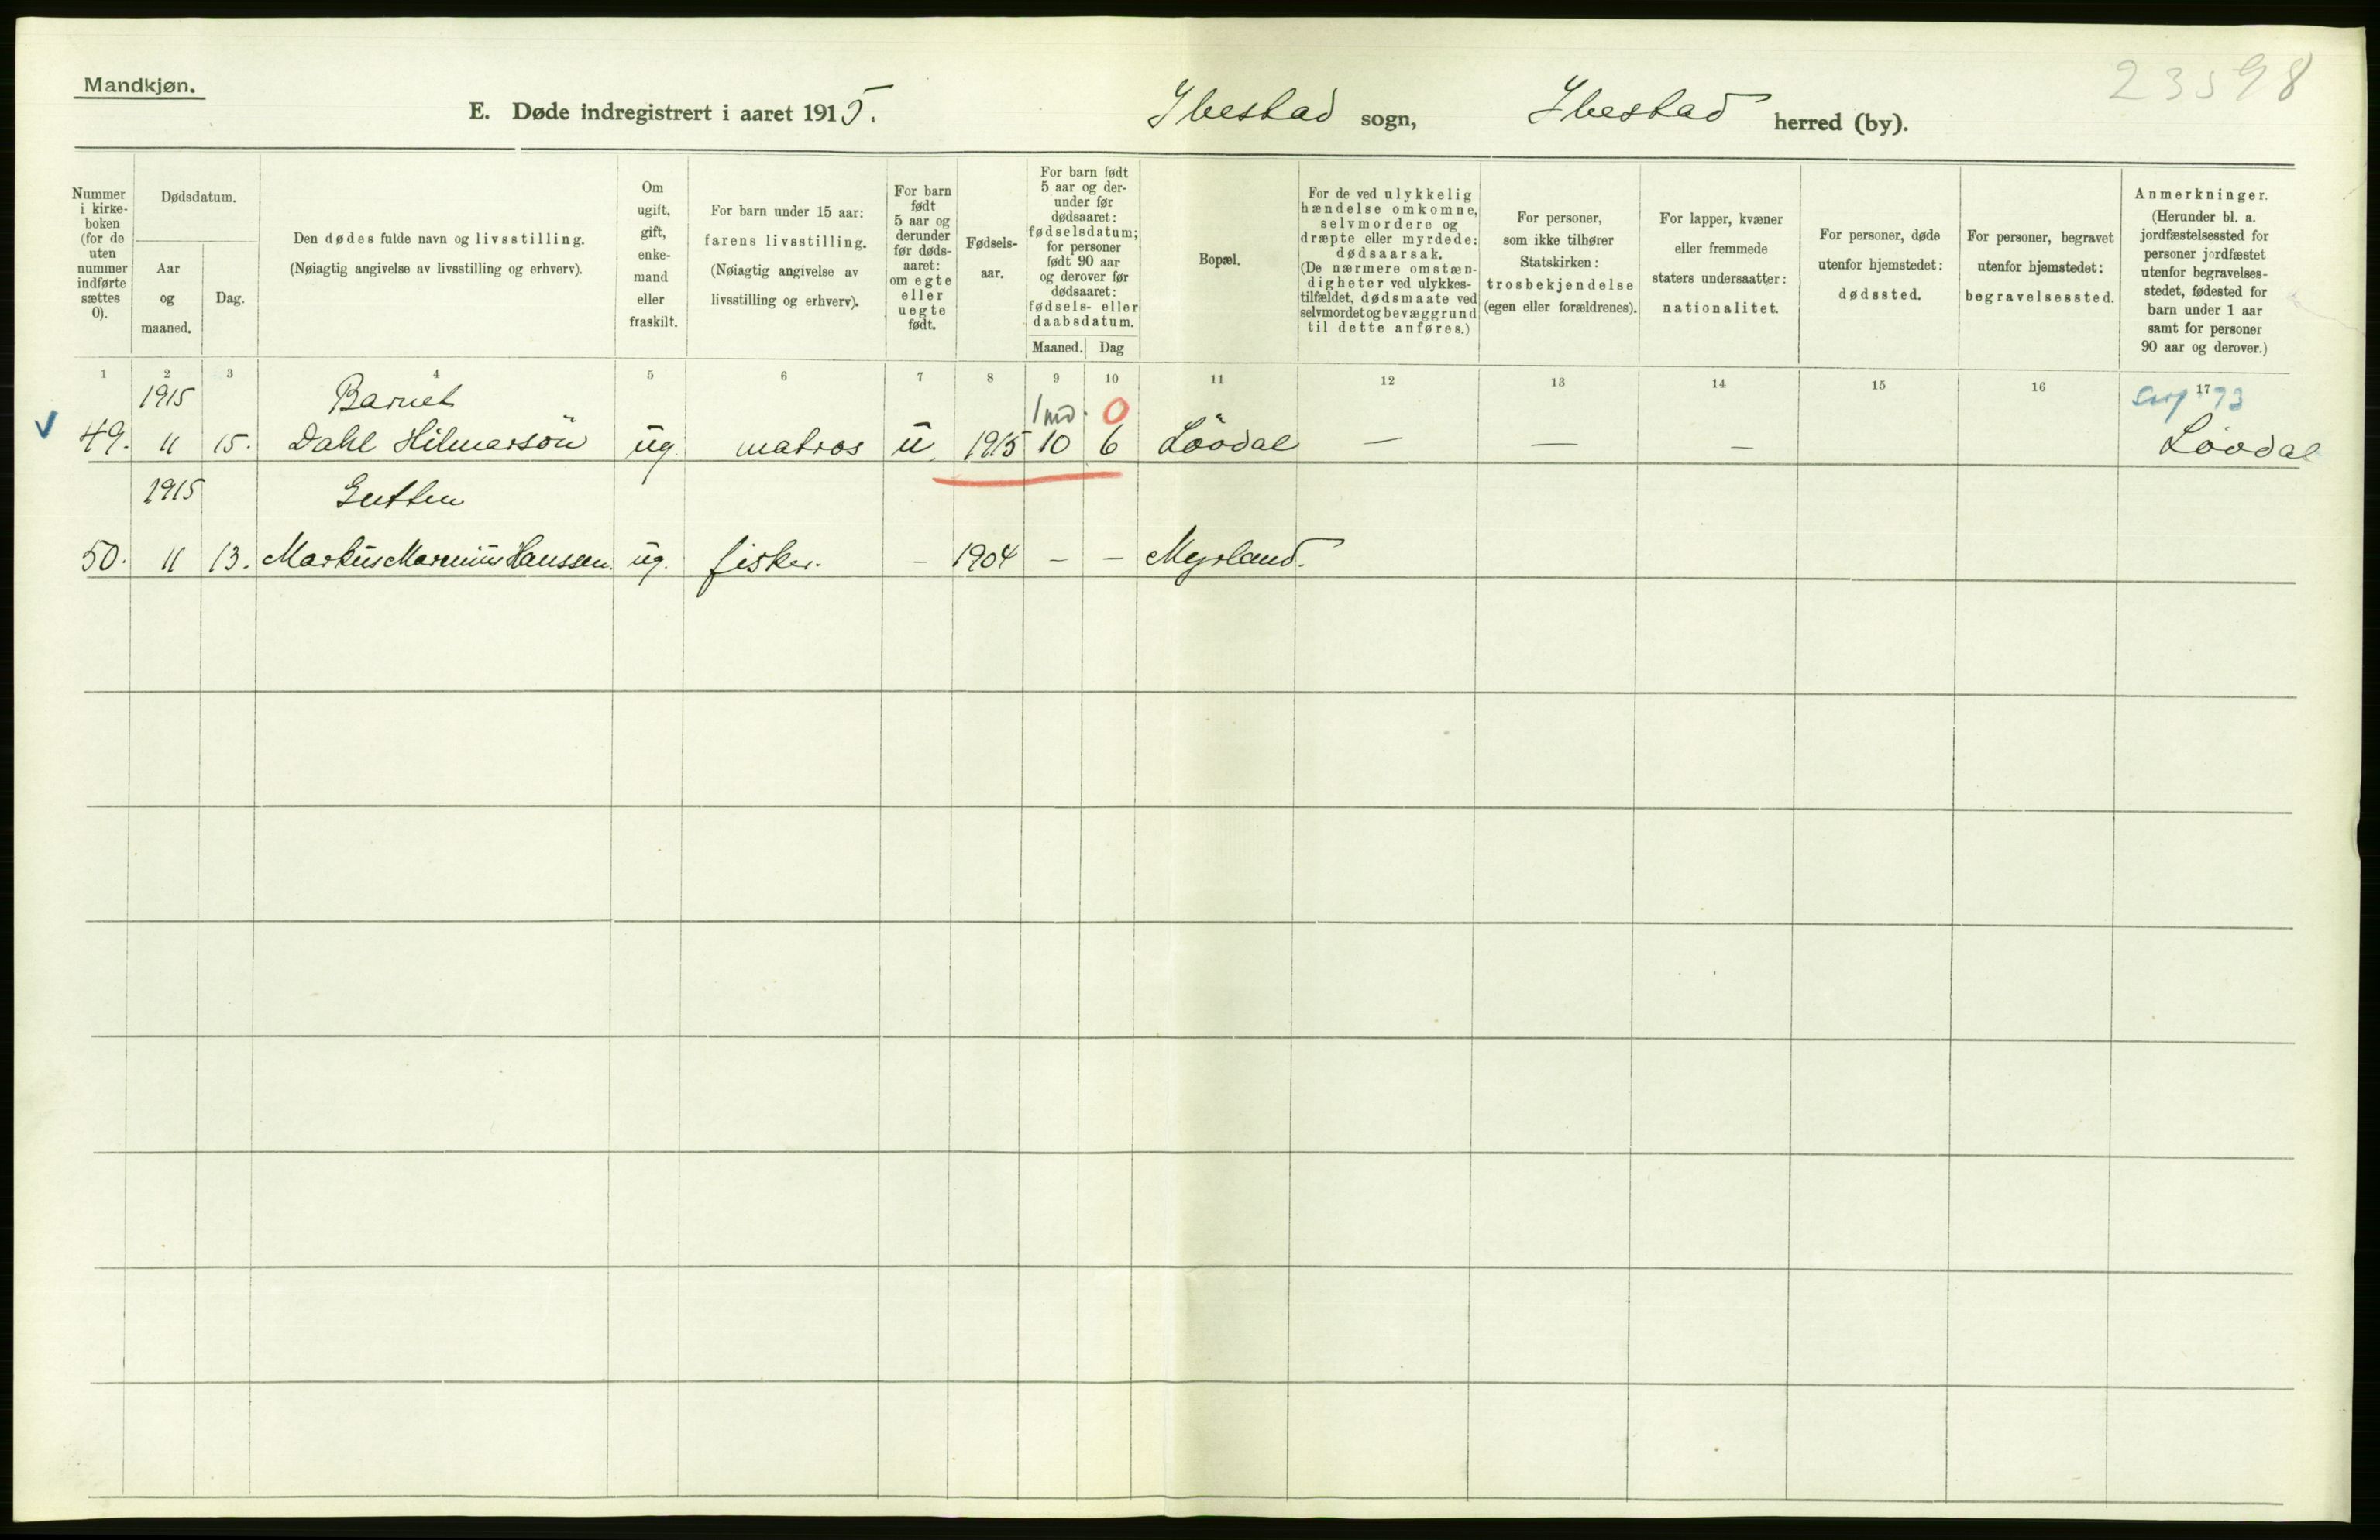 Mandkjøn.
23598
E. Døde indregistrert i aaret 1915. Ibestad sogn, Ibestad herred (by).
Nummer i kirke-boken (for de uten nummer indførte sættes 0).
Dødsdatum.
Aar og maaned.
Dag.
Den dødes fulde navn og livsstilling.
(Nøiagtig angivelse av livsstilling og erhverv).
Om ugift, gift, enke-mand eller fraskilt.
For barn under 15 aar: farens livsstilling.
(Nøiagtig angivelse av livsstilling og erhverv).
For barn født 5 aar og derunder før døds-aaret: om egte eller uegte født.
Fødsels-aar.
For barn født 5 aar og der-under før dødsaaret: fødselsdatum; for personer født 90 aar og derover før dødsaaret: fødsels- eller daabsdatum.
Maaned. Dag
Bopæl.
For de ved ulykkelig hændelse omkomne, selvmordere og dræpte eller myrdede: dødsaarsak.
(De nærmere omstæn-digheter ved ulykkes-tilfældet, dødsmaate ved selvmordet og bevæggrund til dette anføres.)
For personer, som ikke tilhører Statskirken: trosbekjendelse (egen eller forældrenes).
For lapper, kvæner eller fremmede staters undersaatter: nationalitet.
For personer, døde utenfor hjemstedet: dødssted.
For personer, begravet utenfor hjemstedet: begravelsessted.
Anmerkninger.
(Herunder bl. a. jordfæstelsessted for personer jordfæstet utenfor begravelses-stedet, fødested for barn under 1 aar samt for personer 90 aar og derover.)
1 2 3 4 5 6 7 8 9 10 11 12 13 14 15 16 17
1915 Barnet 1 md. 0 73
49. 11 15. Dahl Hilmarsön ug. matros u. 1915 10 6 Löodal — — — Löodal
1915 Gutten
50. 11 13. Markus Marenius Hanssen. ug. fisker. – 1904 – – Myrland.